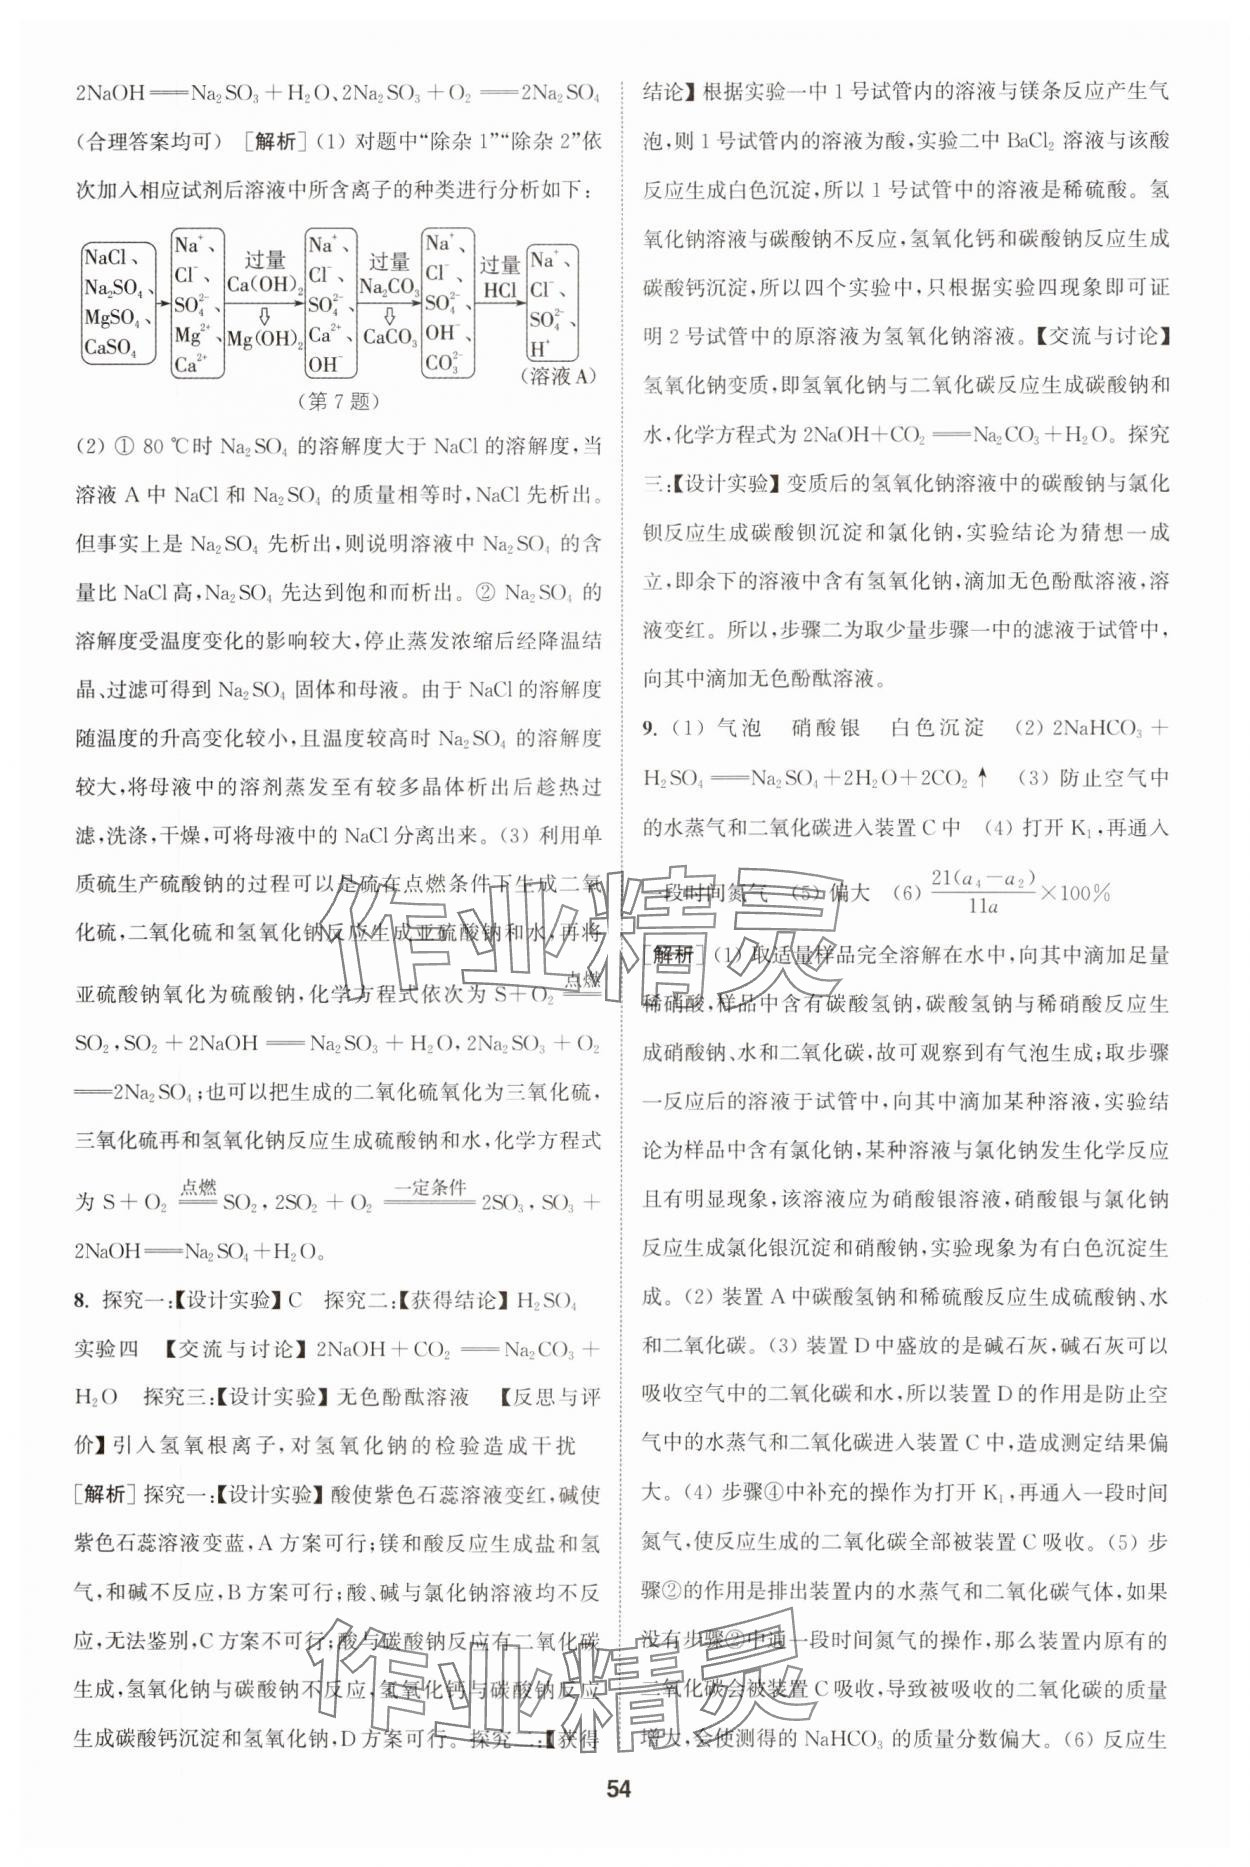 2NaOH══Na₂SO₃+H₂O、2Na₂SO₃+O₂══2Na₂SO₄
(合理答案均可) [解析](1) 对题中“除杂1”“除杂2”依
次加入相应试剂后溶液中所含离子的种类进行分析如下：
NaCl、
Na₂SO₄、
MgSO₄、
CaSO₄
Na⁺、
Cl⁻、
SO₄²⁻、
Mg²⁺、
Ca²⁺
过量
Ca(OH)₂
⇩
Mg(OH)₂
Na⁺、
Cl⁻、
SO₄²⁻、
Ca²⁺、
OH⁻
过量
Na₂CO₃
⇩
CaCO₃
Na⁺、
Cl⁻、
SO₄²⁻、
OH⁻、
CO₃²⁻
过量
HCl
Na⁺、
Cl⁻、
SO₄²⁻、
H⁺
(溶液A)
(第7题)
(2) ① 80 ℃时 Na₂SO₄ 的溶解度大于 NaCl 的溶解度，当
溶液 A 中 NaCl 和 Na₂SO₄ 的质量相等时，NaCl 先析出。
但事实上是 Na₂SO₄ 先析出，则说明溶液中 Na₂SO₄ 的含
量比 NaCl 高，Na₂SO₄ 先达到饱和而析出。② Na₂SO₄ 的
溶解度受温度变化的影响较大，停止蒸发浓缩后经降温结
晶、过滤可得到 Na₂SO₄ 固体和母液。由于 NaCl 的溶解度
随温度的升高变化较小，且温度较高时 Na₂SO₄ 的溶解度
较大，将母液中的溶剂蒸发至有较多晶体析出后趁热过
滤，洗涤，干燥，可将母液中的 NaCl 分离出来。(3) 利用单
质硫生产硫酸钠的过程可以是硫在点燃条件下生成二氧
化硫，二氧化硫和氢氧化钠反应生成亚硫酸钠和水，再将
亚硫酸钠氧化为硫酸钠，化学方程式依次为 S+O₂ 点燃══
SO₂，SO₂+2NaOH══Na₂SO₃+H₂O，2Na₂SO₃+O₂
══2Na₂SO₄；也可以把生成的二氧化硫氧化为三氧化硫，
三氧化硫再和氢氧化钠反应生成硫酸钠和水，化学方程式
为 S+O₂ 点燃══ SO₂，2SO₂+O₂ 一定条件══ 2SO₃，SO₃+
2NaOH══Na₂SO₄+H₂O。
8. 探究一：【设计实验】C 探究二：【获得结论】H₂SO₄
实验四 【交流与讨论】2NaOH+CO₂══Na₂CO₃+
H₂O 探究三：【设计实验】无色酚酞溶液 【反思与评
价】引入氢氧根离子，对氢氧化钠的检验造成干扰
[解析] 探究一：【设计实验】酸使紫色石蕊溶液变红，碱使
紫色石蕊溶液变蓝，A 方案可行；镁和酸反应生成盐和氢
气，和碱不反应，B 方案可行；酸、碱与氯化钠溶液均不反
应，无法鉴别，C 方案不可行；酸与碳酸钠反应有二氧化碳
生成，氢氧化钠与碳酸钠不反应，氢氧化钙与碳酸钠反应
生成碳酸钙沉淀和氢氧化钠，D 方案可行。探究二：【获得
结论】根据实验一中 1 号试管内的溶液与镁条反应产生气
泡，则 1 号试管内的溶液为酸，实验二中 BaCl₂ 溶液与该酸
反应生成白色沉淀，所以 1 号试管中的溶液是稀硫酸。氢
氧化钠溶液与碳酸钠不反应，氢氧化钙和碳酸钠反应生成
碳酸钙沉淀，所以四个实验中，只根据实验四现象即可证
明 2 号试管中的原溶液为氢氧化钠溶液。【交流与讨论】
氢氧化钠变质，即氢氧化钠与二氧化碳反应生成碳酸钠和
水，化学方程式为 2NaOH+CO₂══Na₂CO₃+H₂O。探究
三：【设计实验】变质后的氢氧化钠溶液中的碳酸钠与氯化
钡反应生成碳酸钡沉淀和氯化钠，实验结论为猜想一成
立，即余下的溶液中含有氢氧化钠，滴加无色酚酞溶液，溶
液变红。所以，步骤二为取少量步骤一中的滤液于试管中，
向其中滴加无色酚酞溶液。
9. (1) 气泡 硝酸银 白色沉淀 (2) 2NaHCO₃+
H₂SO₄══Na₂SO₄+2H₂O+2CO₂↑ (3) 防止空气中
的水蒸气和二氧化碳进入装置 C 中 (4) 打开 K₁，再通入
一段时间氮气 (5) 偏大 (6) 21(a₄−a₂)/11a ×100%
[解析] (1) 取适量样品完全溶解在水中，向其中滴加足量
稀硝酸，样品中含有碳酸氢钠，碳酸氢钠与稀硝酸反应生
成硝酸钠、水和二氧化碳，故可观察到有气泡生成；取步骤
一反应后的溶液于试管中，向其中滴加某种溶液，实验结
论为样品中含有氯化钠，某种溶液与氯化钠发生化学反应
且有明显现象，该溶液应为硝酸银溶液，硝酸银与氯化钠
反应生成氯化银沉淀和硝酸钠，实验现象为有白色沉淀生
成。(2) 装置 A 中碳酸氢钠和稀硫酸反应生成硫酸钠、水
和二氧化碳。(3) 装置 D 中盛放的是碱石灰，碱石灰可以
吸收空气中的二氧化碳和水，所以装置 D 的作用是防止空
气中的水蒸气和二氧化碳进入装置 C 中，造成测定结果偏
大。(4) 步骤④中补充的操作为打开 K₁，再通入一段时间
氮气，使反应生成的二氧化碳全部被装置 C 吸收。(5) 步
骤②的作用是排出装置内的水蒸气和二氧化碳气体，如果
没有步骤②中通一段时间氮气的操作，那么装置内原有的
二氧化碳会被装置 C 吸收，导致被吸收的二氧化碳的质量
增大，会使测得的 NaHCO₃ 的质量分数偏大。(6) 反应生
作业精灵
作业精灵
54